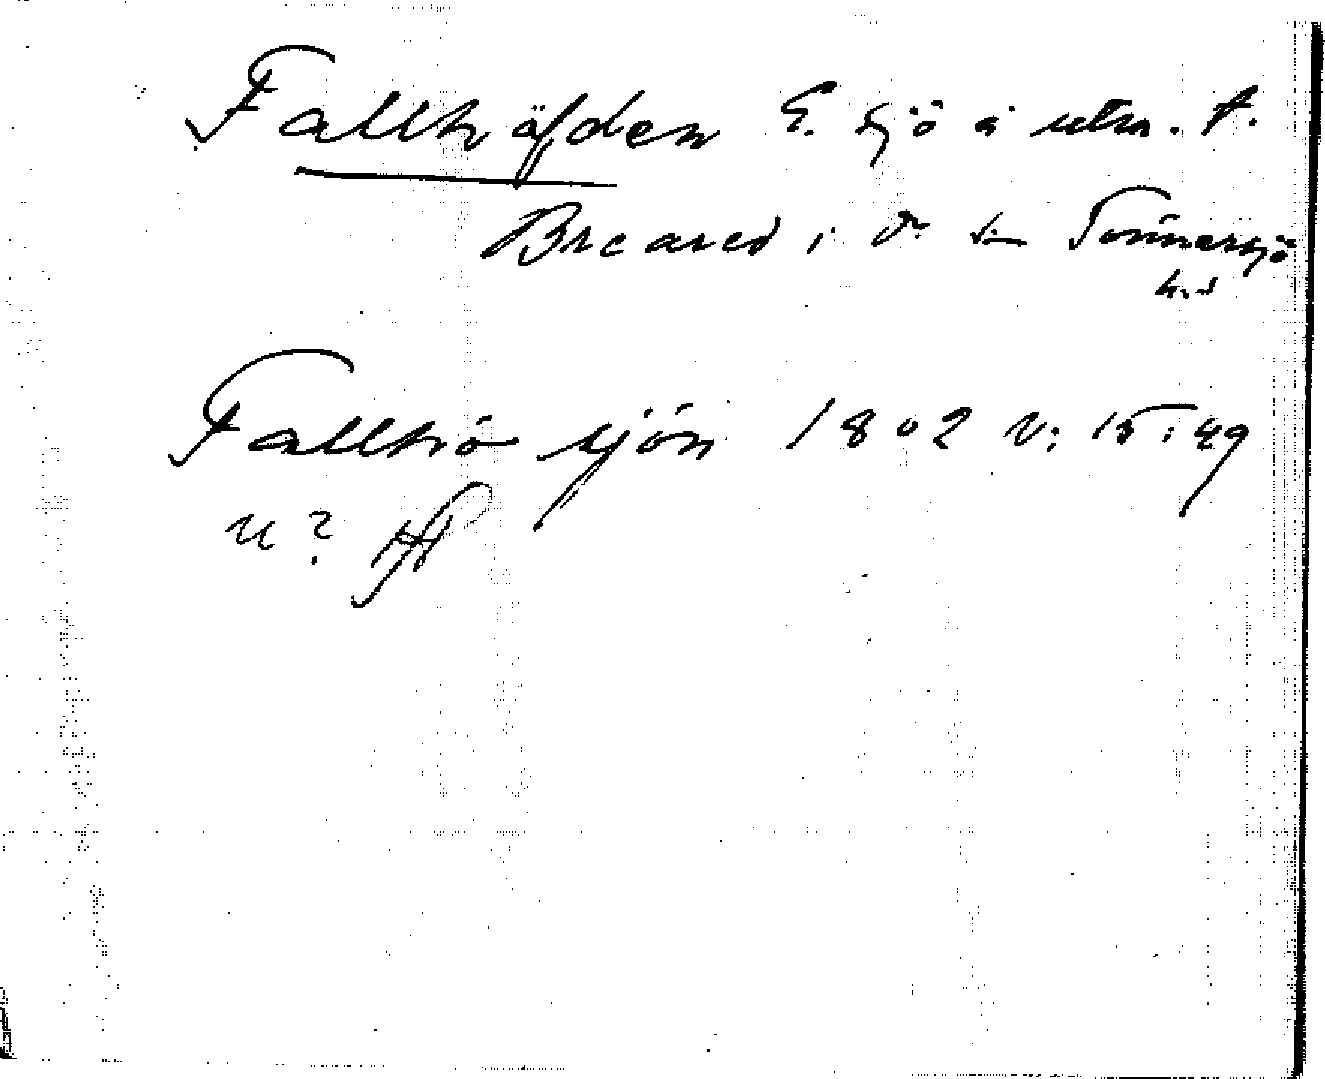 Fallhöfden E. sjö å utm. t.
Breared i d. s. Tönnersjö
h.d
Fallhö sjön 1802 V: 15: 49
u?